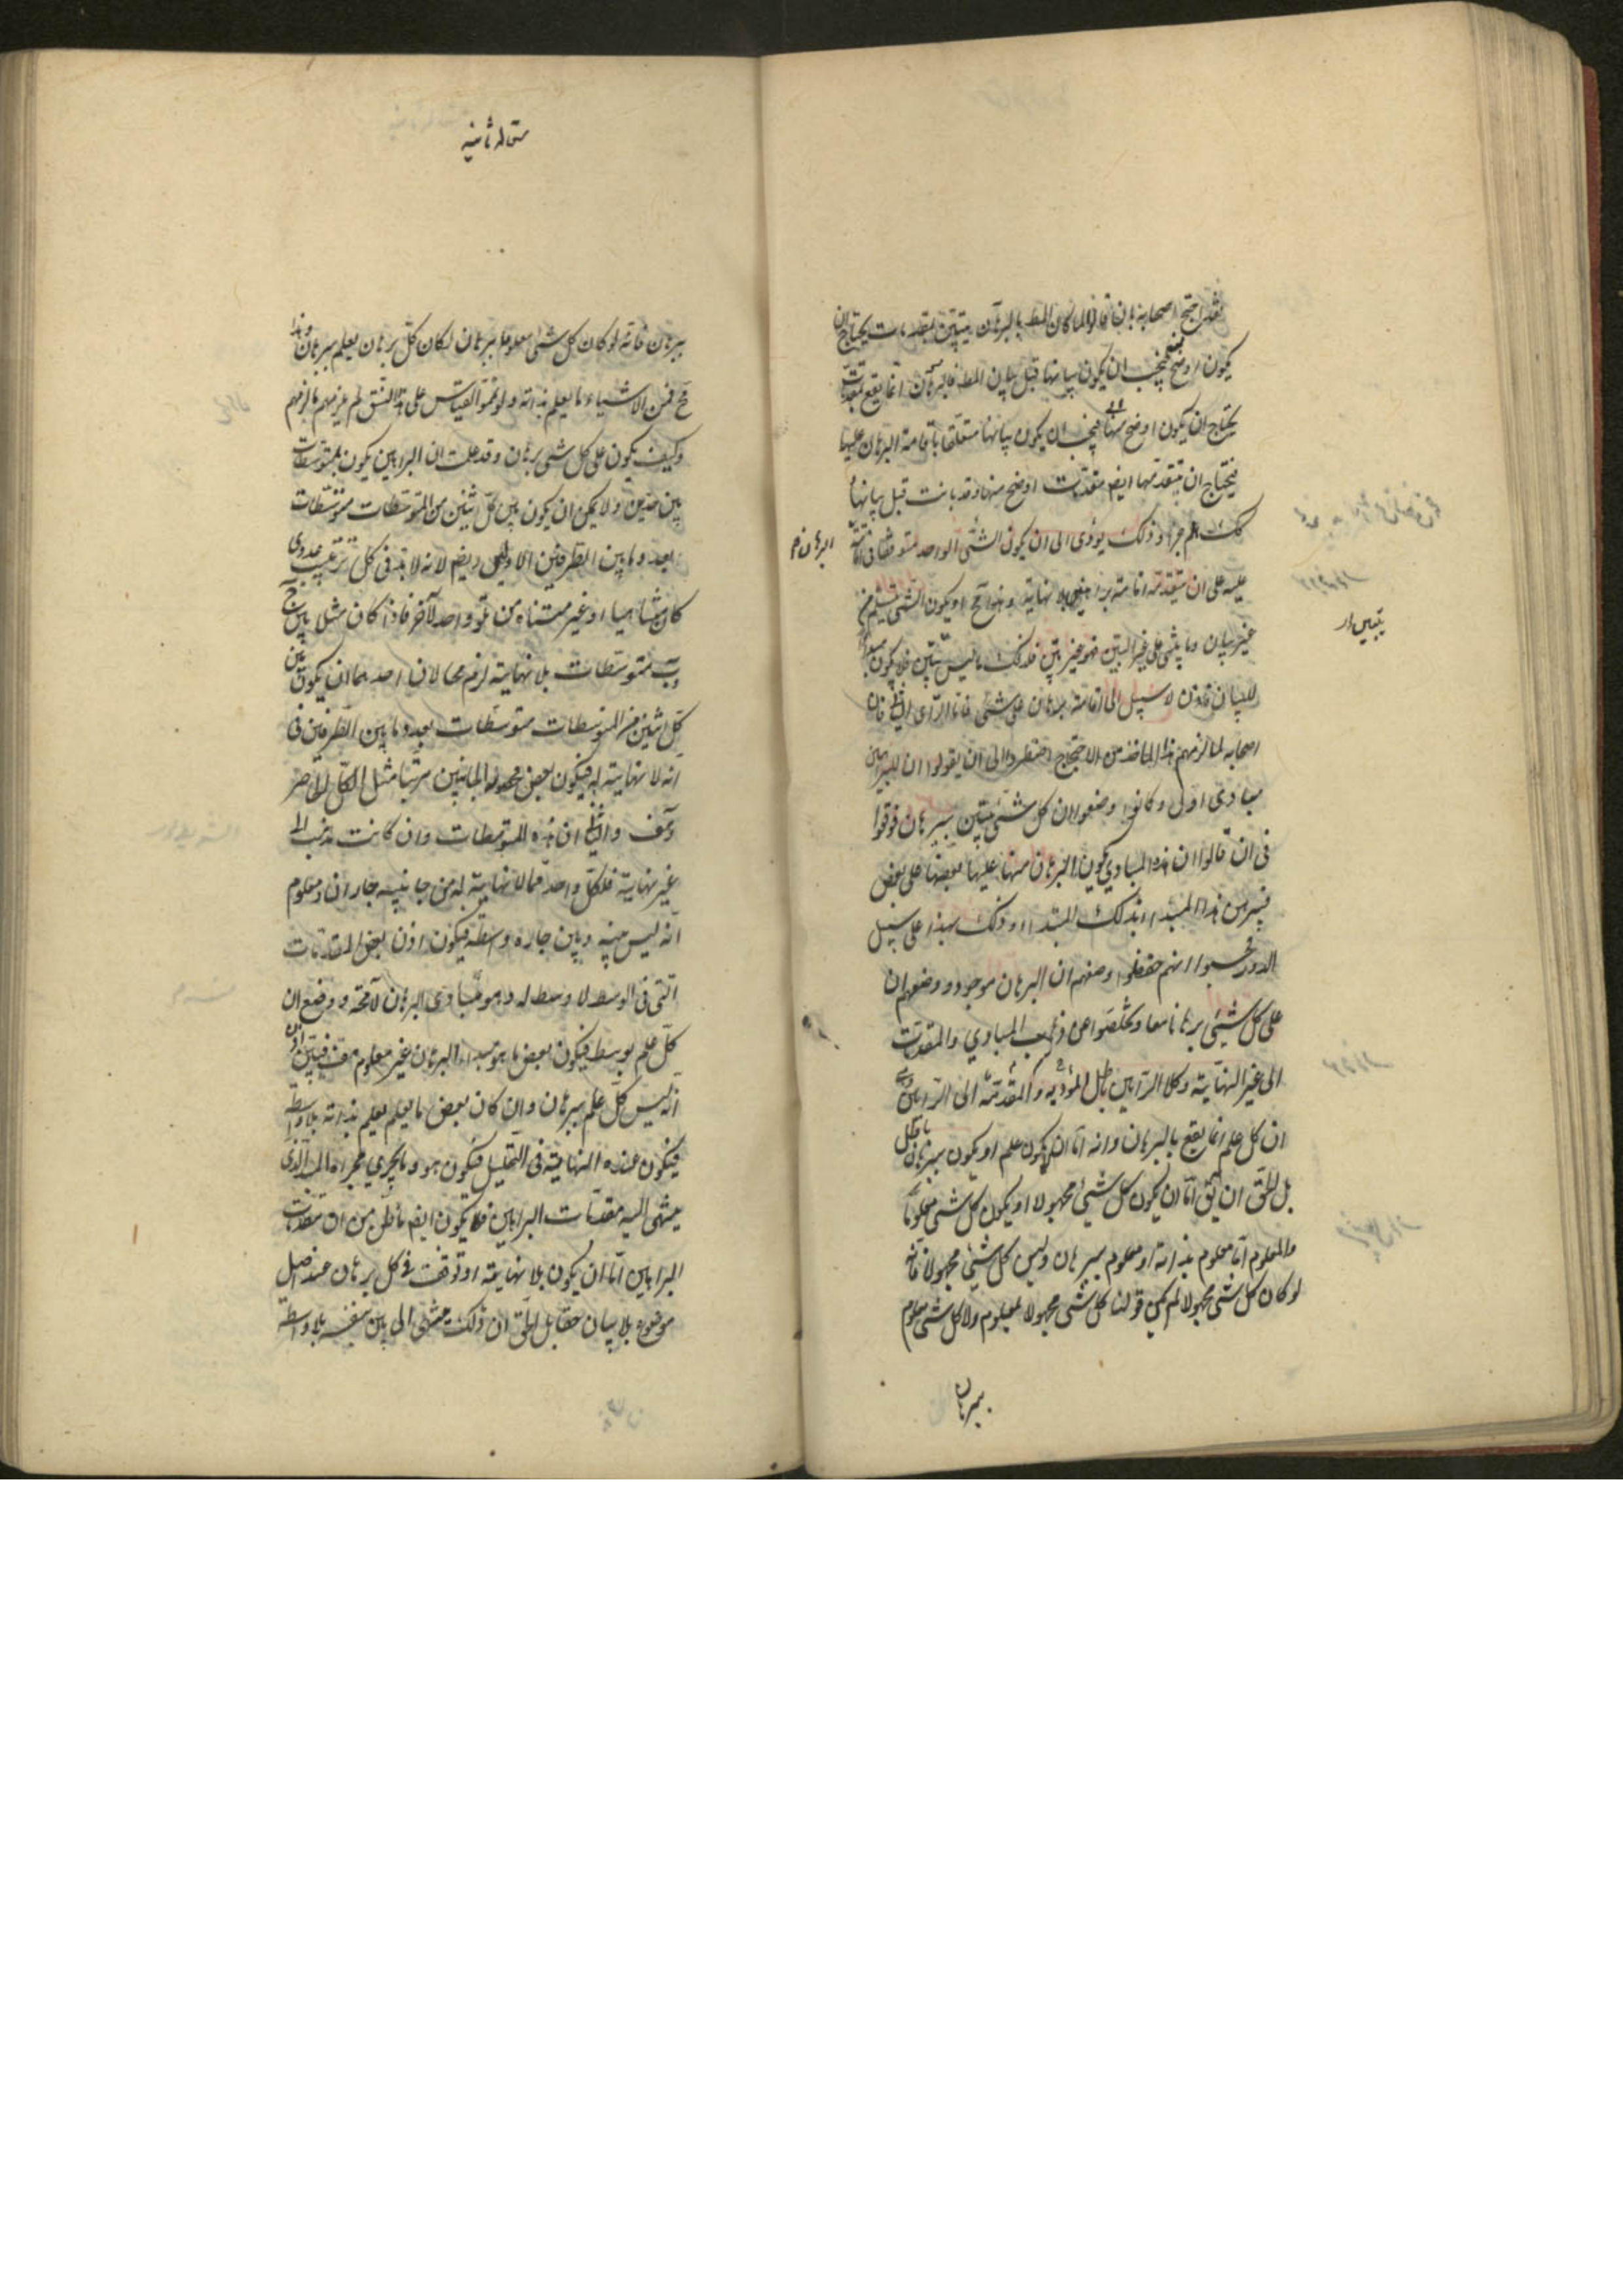 فقد احتج اصحابه بان قالوا لما كان المط بالبرهان يتبين بمقدمات يحتاج ان
يكون اوضح منه فيجب ان يكون بيانها قبل بيان المط فالبرهان انما يقع بمقدمات
يحتاج ان يكون اوضح منها فيجب ان يكون بيانها متعلقا باقامة البرهان عليها
فيحتاج ان يتقدمها ايضا مقدمات اوضح منها وقد بانت قبل بيانها
كك هلم جرا وذلك يؤدى الى ان يكون الشئ الواحد متوقفا فى اقامة
البرهان
عليه على ان يتقدمه اقامة براهين بلا نهاية وهذا مح او يكون الشئ يسلم من
غير بيان وما يبتنى على غير البين فهو غير بين فذلك ما ليس ببين فلا يكون مبدأ
للبيان فاذن لا سبيل الى اقامة برهان على شئ فاما الرأى الثانى فان
اصحابه لما لزمهم هذا الماخذ من الاحتجاج اضطروا الى ان يقولوا ان للبراهين
مبادى اولى وكانوا وضعوا ان كل شئ يتبين ببرهان فوقعوا
فى ان قالوا ان هذه المبادي يكون البرهان منها عليها بعضها على بعض
فيبرهن هذا المبدا بذلك المبدا وذلك بهذا على سبيل
الدور فحسبوا انهم حفظوا وضعهم ان البرهان موجود ووضعهم ان
على كل شئ برهانا معا وتخلصوا عن ذهاب المبادي والمقدمات
الى غير النهاية وكلا الرأيين باطل والمقدمة المؤدية الى الرأيين وهى
ان كل علم انما يقع بالبرهان وانه اما ان لا يكون علم او يكون ببرهان باطل
بل الحق ان يق اما ان يكون كل شئ مجهولا او يكون كل شئ معلوما
والمعلوم اما معلوم بذاته او معلوم ببرهان وليس كل شئ مجهولا فانه
لو كان كل شئ مجهولا لم يكن قولنا كل شئ مجهولا بمعلوم ولا كل شئ معلوم
ببرهان
مقاله ثانيه
ببرهان فانه لو كان كل شئ معلوما ببرهان لكان كل برهان يعلم ببرهان وهذا
مح فمن الاشياء ما يعلم بذاته ولو تمموا القياس على هذا النسق لم يلزمهم ما لزمهم
وكيف يكون على كل شئ برهان وقد علمت ان البراهين يكون بمتوسطات
بين حدين ولا يمكن ان يكون بين كل اثنين من المتوسطات متوسطات
بعدد ما بين الطرفين الاولين وايضا لانه لابد فى كل ترتيب عددى
كان متناهيا او غير متناه من تلو واحد لآخر فاذا كان مثل بين ج
وب متوسطات بلا نهاية لزم محالان احدهما ان يكون بين
كل اثنين من المتوسطات متوسطات بعدد ما بين الطرفين فى
انه لا نهاية له فيكون بعض محصور الجانبين مرتبا مثل الكل الحاصر
وهف والثانى ان هذه المتوسطات وان كانت تذهب الى
غير نهاية فلكل واحد مما لا نهاية له من جانبيه جاران ومعلوم
انه ليس بينه وبين جاره واسطة فيكون اذن بعض المقدمات
التى فى الوسط لا وسط له وهو مبادى البرهان لا محة ووضع ان
كل علم بوسط فيكون بعض ما هو مبدأ البرهان غير معلوم هف فتبين اذن
انه ليس كل علم ببرهان وان كان بعض ما يعلم يعلم بذاته بلا واسطة
فيكون عنده النهاية فى التحليل فيكون هو وما يجري مجراه المبدا الذى
ينتهى اليه مقدمات البراهين فلا يكون ايضا ما ظن من ان مقدمات
البراهين اما ان يكون بلا نهاية او توقف فى كل برهان عند اصل
موضوع بلا بيان حقا بل الحق ان ذلك ينتهى الى بين بنفسه بلا واسطة